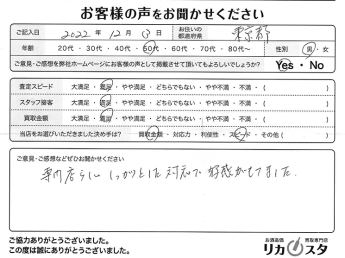 お客様の声をお聞かせください
ご記入日 2022年 12月 13日 お住いの都道府県 東京都
年齢 20代・30代・40代・50代・60代・70代・80代〜 性別 男・女
ご意見・ご感想を弊社ホームページにお客様の声として掲載させて頂いてもよろしいでしょうか? Yes・No
査定スピード 大満足・満足・やや満足・どちらでもない・やや不満・不満・( )
スタッフ接客 大満足・満足・やや満足・どちらでもない・やや不満・不満・( )
買取金額 大満足・満足・やや満足・どちらでもない・やや不満・不満・( )
当店をお選びいただきました決め手は? 買取金額・対応力・利便性・スピード・その他( )
ご意見・ご感想などぜひお聞かせください
専門店らしい しっかりとした対応で 好感がもてました.
ご協力ありがとうございました。
この度は誠にありがとうございました。
お酒高価 買取専門店
リカスタ